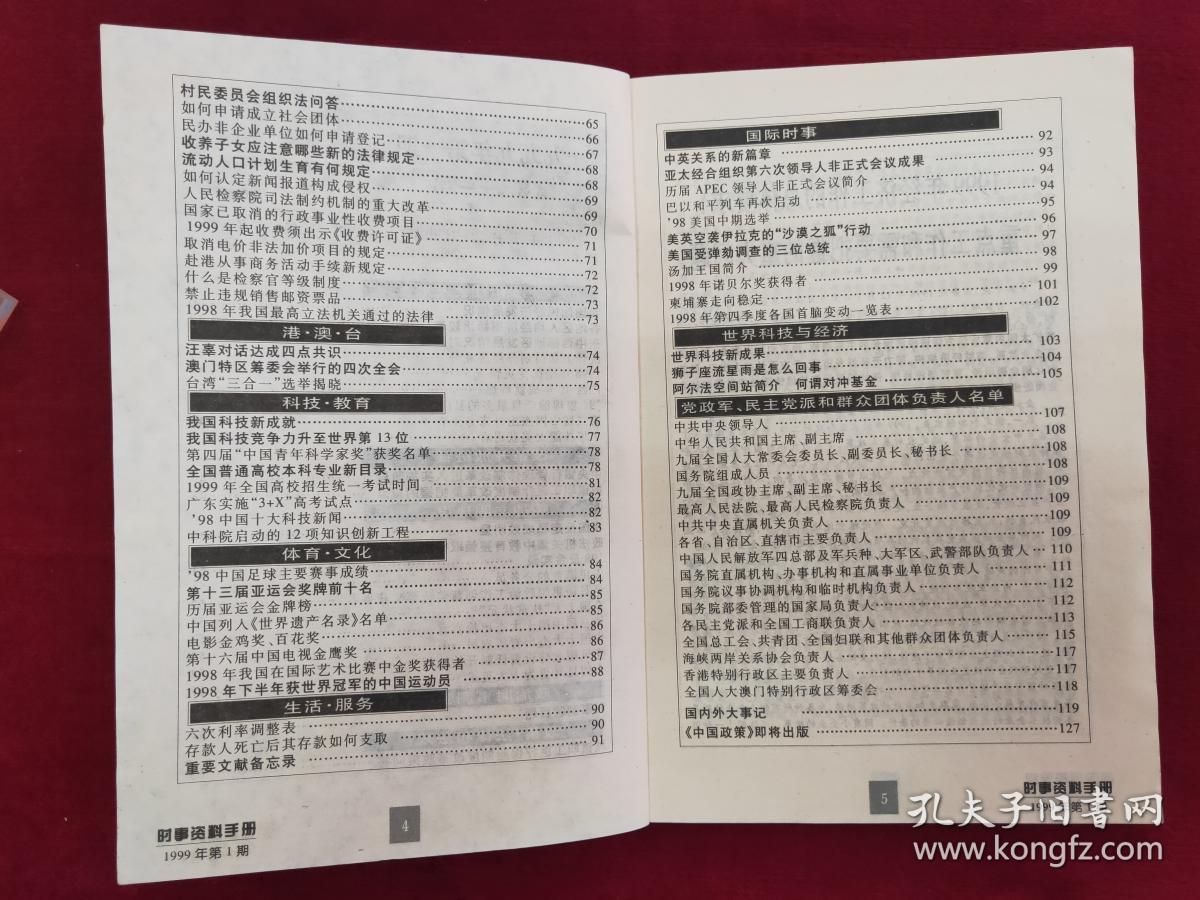 村民委员会组织法问答……65
如何申请成立社会团体……66
民办非企业单位如何申请登记……67
收养子女应注意哪些新的法律规定……68
流动人口计划生育有何规定……68
如何认定新闻报道构成侵权……69
人民检察院司法制约机制的重大改革……69
国家已取消的行政事业性收费项目……70
1999年起收费须出示《收费许可证》……71
取消电价非法加价项目的规定……71
赴港从事商务活动手续新规定……72
什么是检察官等级制度……72
禁止违规销售邮资票品……73
1998年我国最高立法机关通过的法律……73
港·澳·台
汪辜对话达成四点共识……74
澳门特区筹委会举行的四次全会……74
台湾“三合一”选举揭晓……75
科技·教育
我国科技新成就……76
我国科技竞争力升至世界第13位……77
第四届“中国青年科学家奖”获奖名单……78
全国普通高校本科专业新目录……78
1999年全国高校招生统一考试时间……81
广东实施“3+X”高考试点……82
'98中国十大科技新闻……82
中科院启动的12项知识创新工程……83
体育·文化
'98中国足球主要赛事成绩……84
第十三届亚运会奖牌前十名……84
历届亚运会金牌榜……85
中国列入《世界遗产名录》名单……85
电影金鸡奖、百花奖……86
第十六届中国电视金鹰奖……86
1998年我国在国际艺术比赛中金奖获得者……87
1998年下半年获世界冠军的中国运动员……88
生活·服务
六次利率调整表……90
存款人死亡后其存款如何支取……90
重要文献备忘录……91
时事资料手册
1999年第1期
4
国际时事
中英关系的新篇章……92
亚太经合组织第六次领导人非正式会议成果……93
历届APEC领导人非正式会议简介……94
巴以和平列车再次启动……94
'98美国中期选举……95
美英空袭伊拉克的“沙漠之狐”行动……96
美国受弹劾调查的三位总统……97
汤加王国简介……98
1998年诺贝尔奖获得者……99
柬埔寨走向稳定……101
1998年第四季度各国首脑变动一览表……102
世界科技与经济
世界科技新成果……103
狮子座流星雨是怎么回事……104
阿尔法空间站简介 何谓对冲基金……105
党政军、民主党派和群众团体负责人名单
中共中央领导人……107
中华人民共和国主席、副主席……108
九届全国人大常委会委员长、副委员长、秘书长……108
国务院组成人员……108
九届全国政协主席、副主席、秘书长……109
最高人民法院、最高人民检察院负责人……109
中共中央直属机关负责人……109
各省、自治区、直辖市主要负责人……109
中国人民解放军四总部及军兵种、大军区、武警部队负责人…110
国务院直属机构、办事机构和直属事业单位负责人……111
国务院议事协调机构和临时机构负责人……112
国务院部委管理的国家局负责人……112
各民主党派和全国工商联负责人……113
全国总工会、共青团、全国妇联和其他群众团体负责人……115
海峡两岸关系协会负责人……117
香港特别行政区主要负责人……117
全国人大澳门特别行政区筹委会……118
国内外大事记……119
《中国政策》即将出版……127
5
时事资料手册
孔夫子旧书网
www.kongfz.com